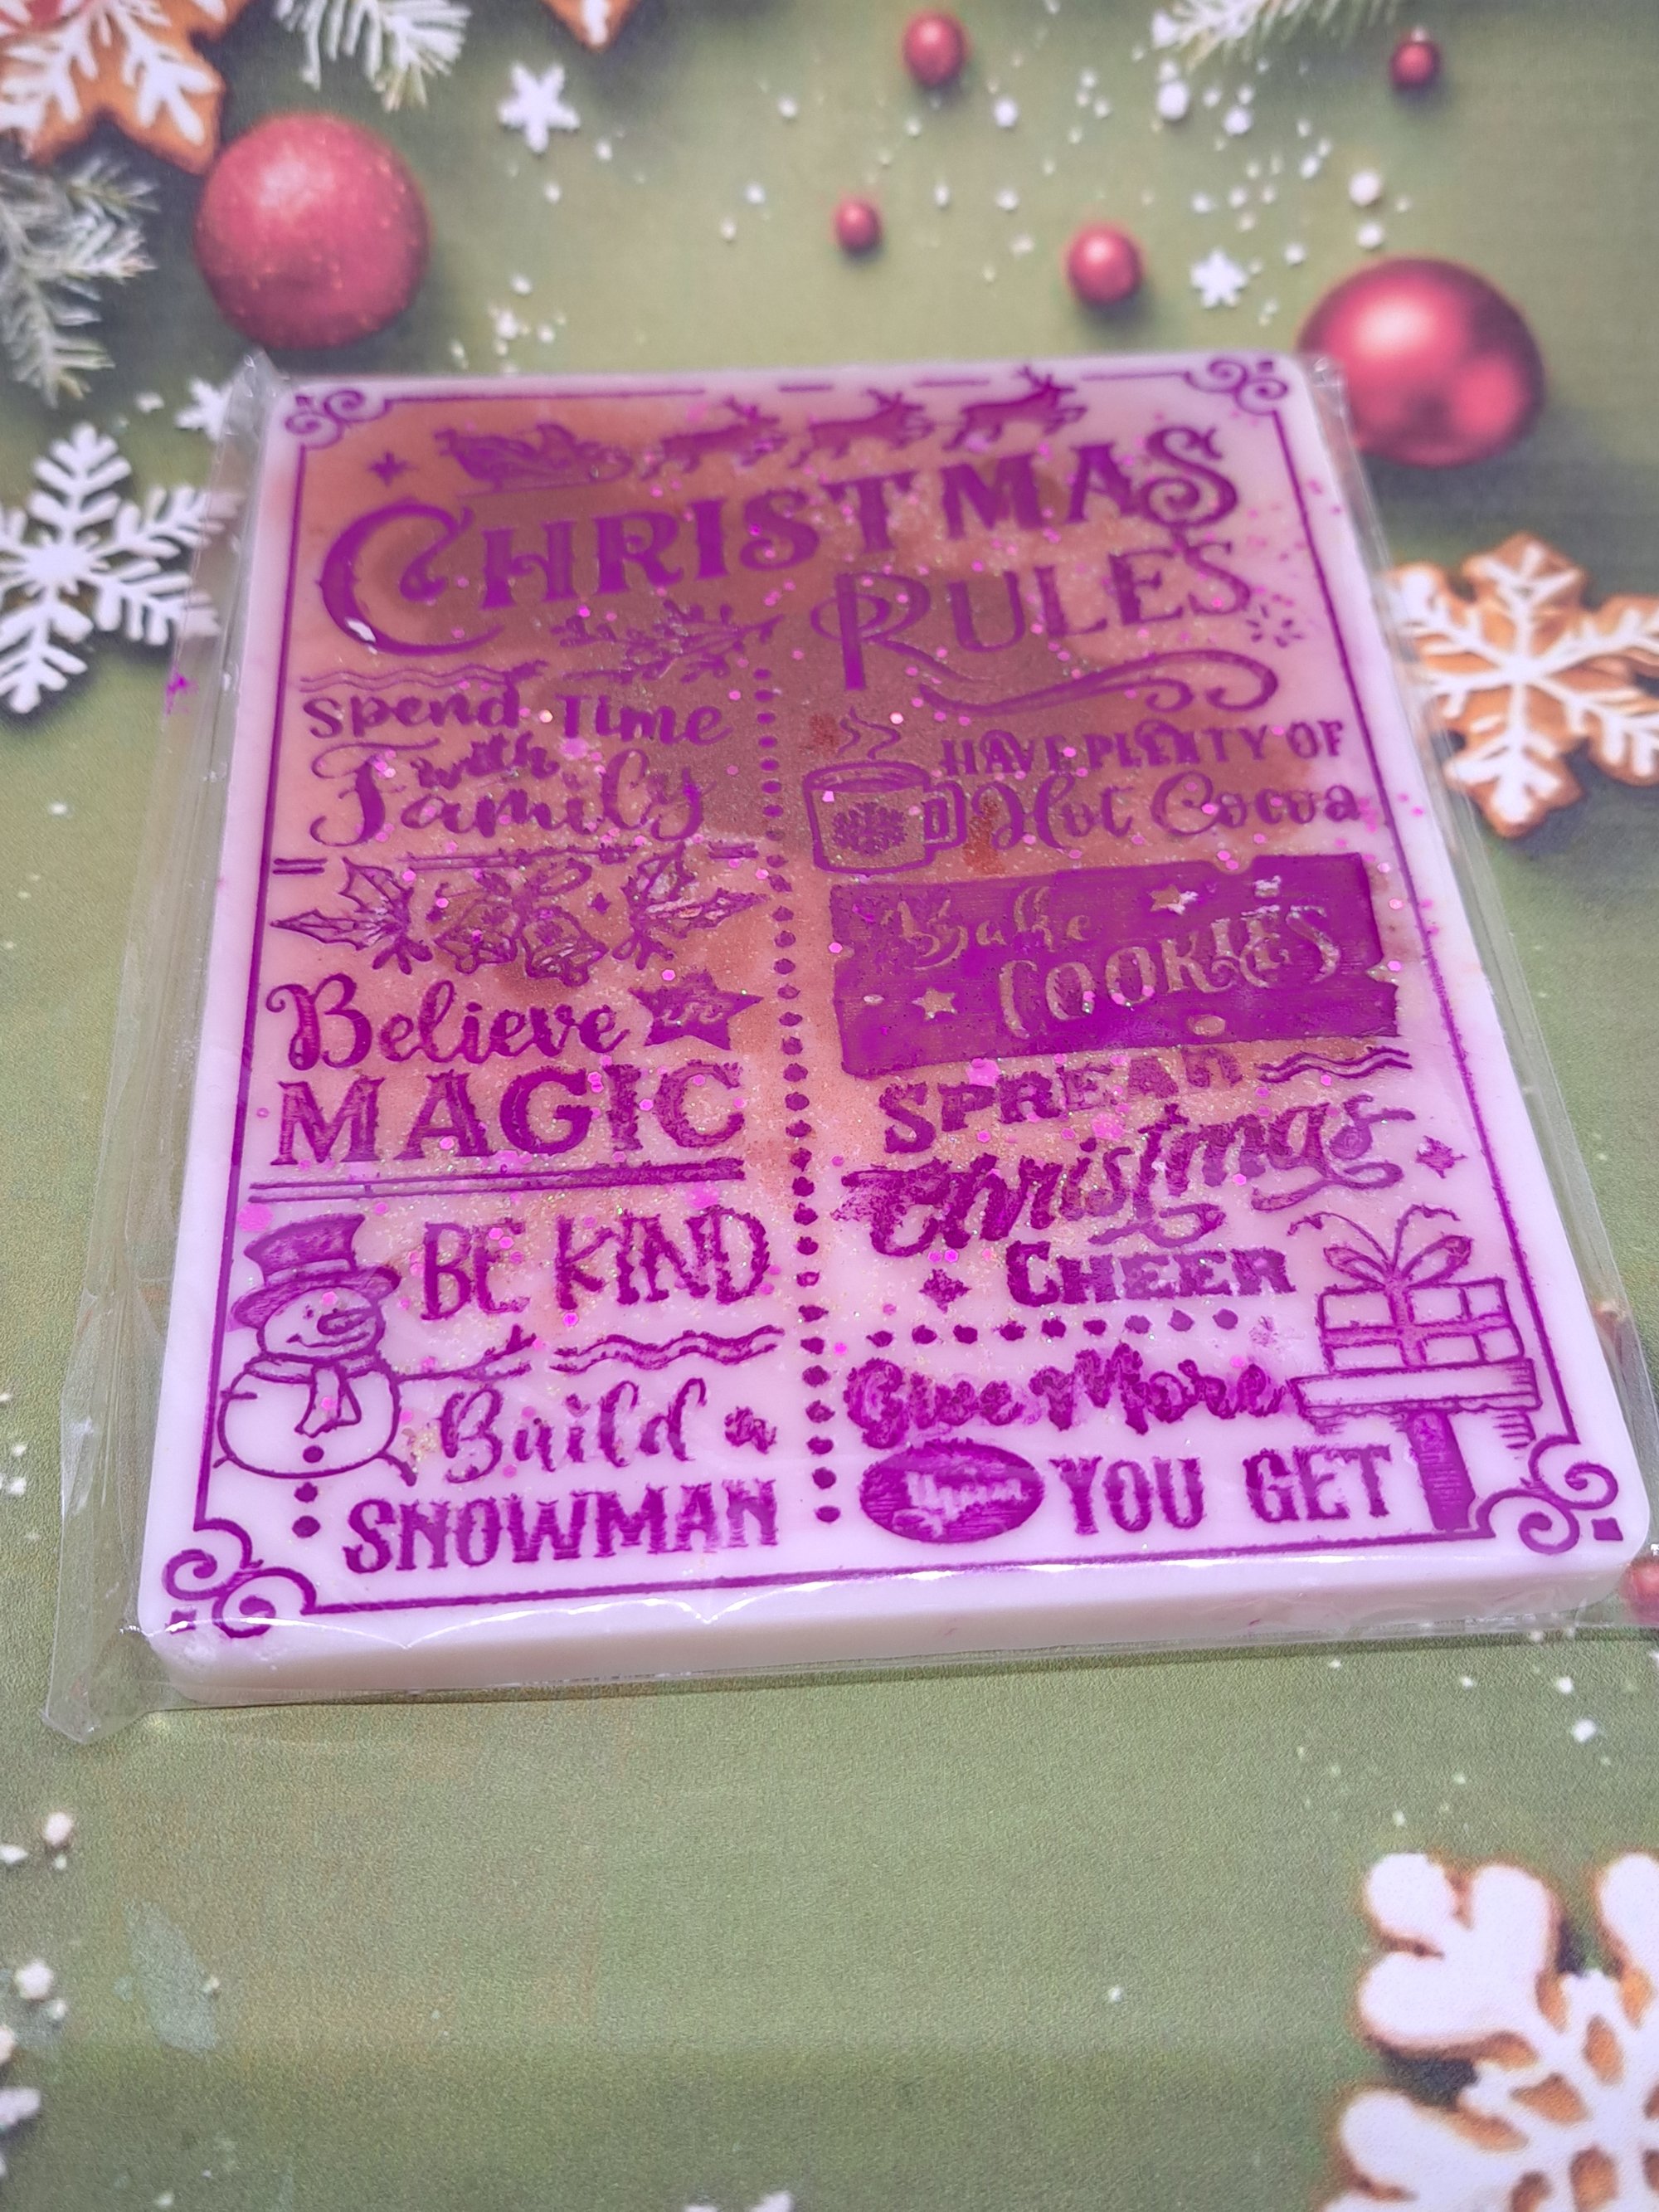 CHRISTMAS
RULES
Spend Time
with
Family
Believe in
MAGIC
BE KIND
Build a
SNOWMAN
HAVE PLENTY OF
Hot Cocoa
Bake
COOKIES
SPREAD
Christmas
CHEER
Give More
Than YOU GET